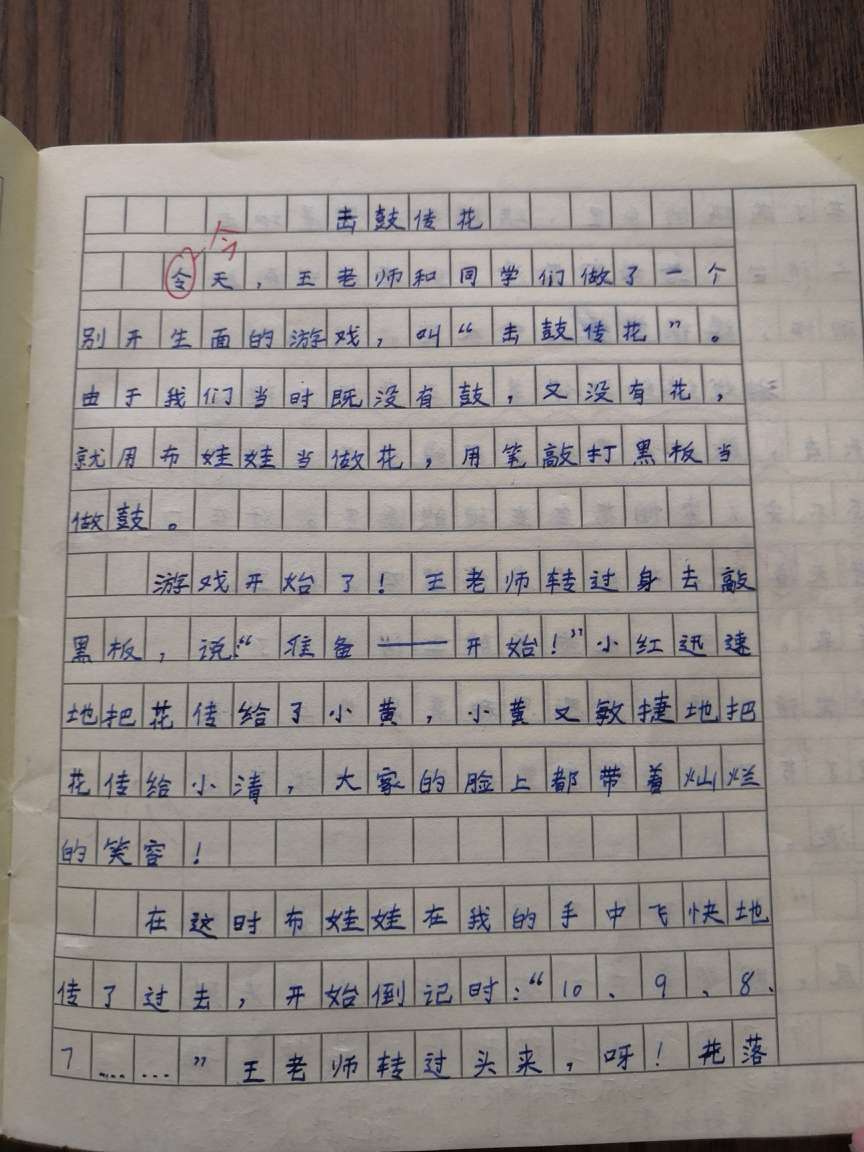 击鼓传花
今
令天，王老师和同学们做了一个
别开生面的游戏，叫“击鼓传花”。
由于我们当时既没有鼓，又没有花，
就用布娃娃当做花，用笔敲打黑板当
做鼓。
游戏开始了！王老师转过身去敲
黑板，说：“准备——开始！”小红迅速
地把花传给了小黄，小黄又敏捷地把
花传给小清，大家的脸上都带着灿烂
的笑容！
在这时布娃娃在我的手中飞快地
传了过去，开始倒记时：“10、9、8、
7……”王老师转过头来，呀！花落